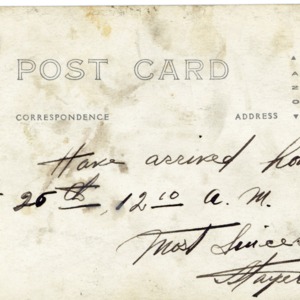 POST CARD
CORRESPONDENCE ADDRESS
Have arrived ho
25th, 12 10 A. M.
Most Sincer